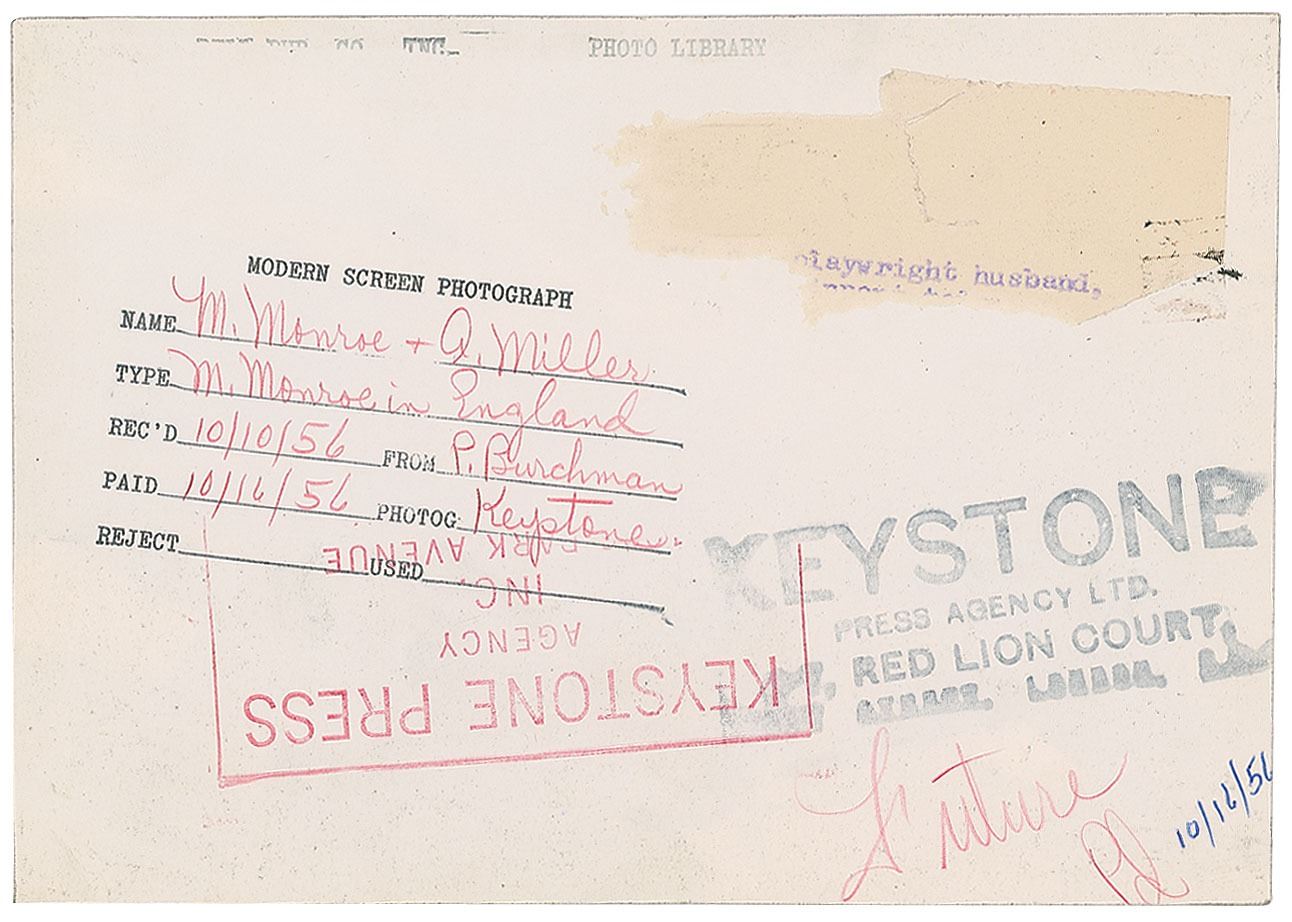 PHOTO LIBRARY
playwright husband,
MODERN SCREEN PHOTOGRAPH
NAME M. Monroe + A. Miller
TYPE M. Monroe in England
REC'D 10/10/56 FROM P. Burchman
PAID 10/16/56 PHOTOG: Keystone.
REJECT USED
KEYSTONE PRESS
AGENCY
INC.
PARK AVENUE
KEYSTONE
PRESS AGENCY LTD.
RED LION COURT,
Future
Pd 10/16/56